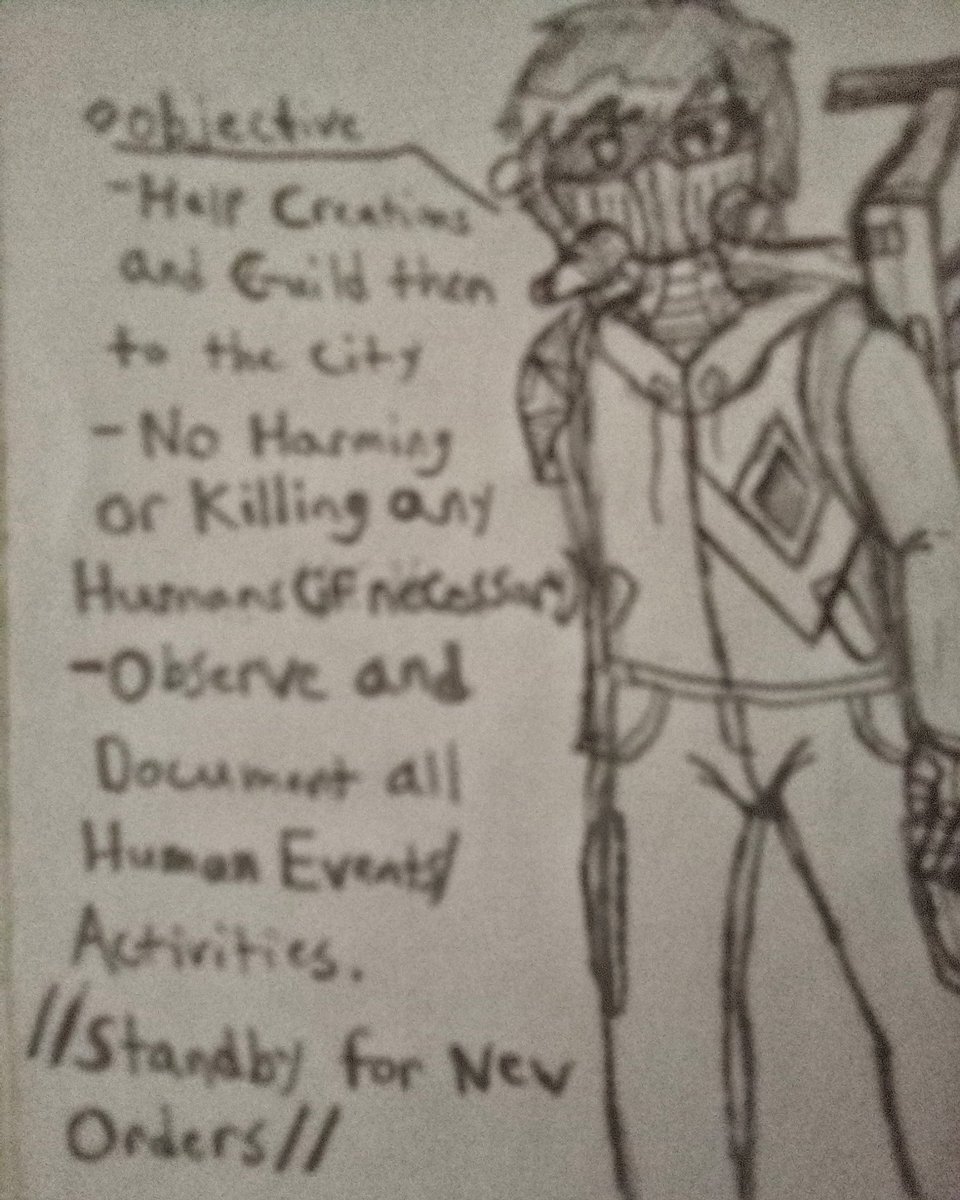 Objective
-Help Creations
and Guild then
to the City
-No Harming
or Killing any
Humans (if necessary)
-Observe and
Document all
Human Events/
Activities.
//Standby for New
Orders//